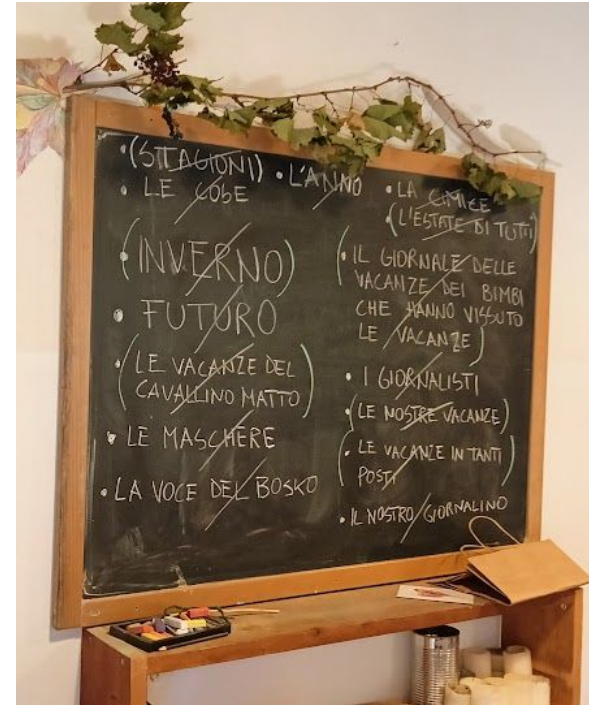 • (STAGIONI)
• L'ANNO
• LE COSE
(INVERNO)
• FUTURO
• (LE VACANZE DEL
CAVALLINO MATTO)
• LE MASCHERE
• LA VOCE DEL BOSKO
• LA CIMICE
• (L'ESTATE DI TUTTI)
(• IL GIORNALE DELLE
VACANZE DEI BIMBI
CHE HANNO VISSUTO
LE VACANZE)
• I GIORNALISTI
• (LE NOSTRE VACANZE)
(• LE VACANZE IN TANTI
POSTI
• IL NOSTRO GIORNALINO